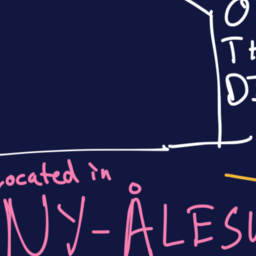 O
TH
DI
located in
NY-ÅLESU